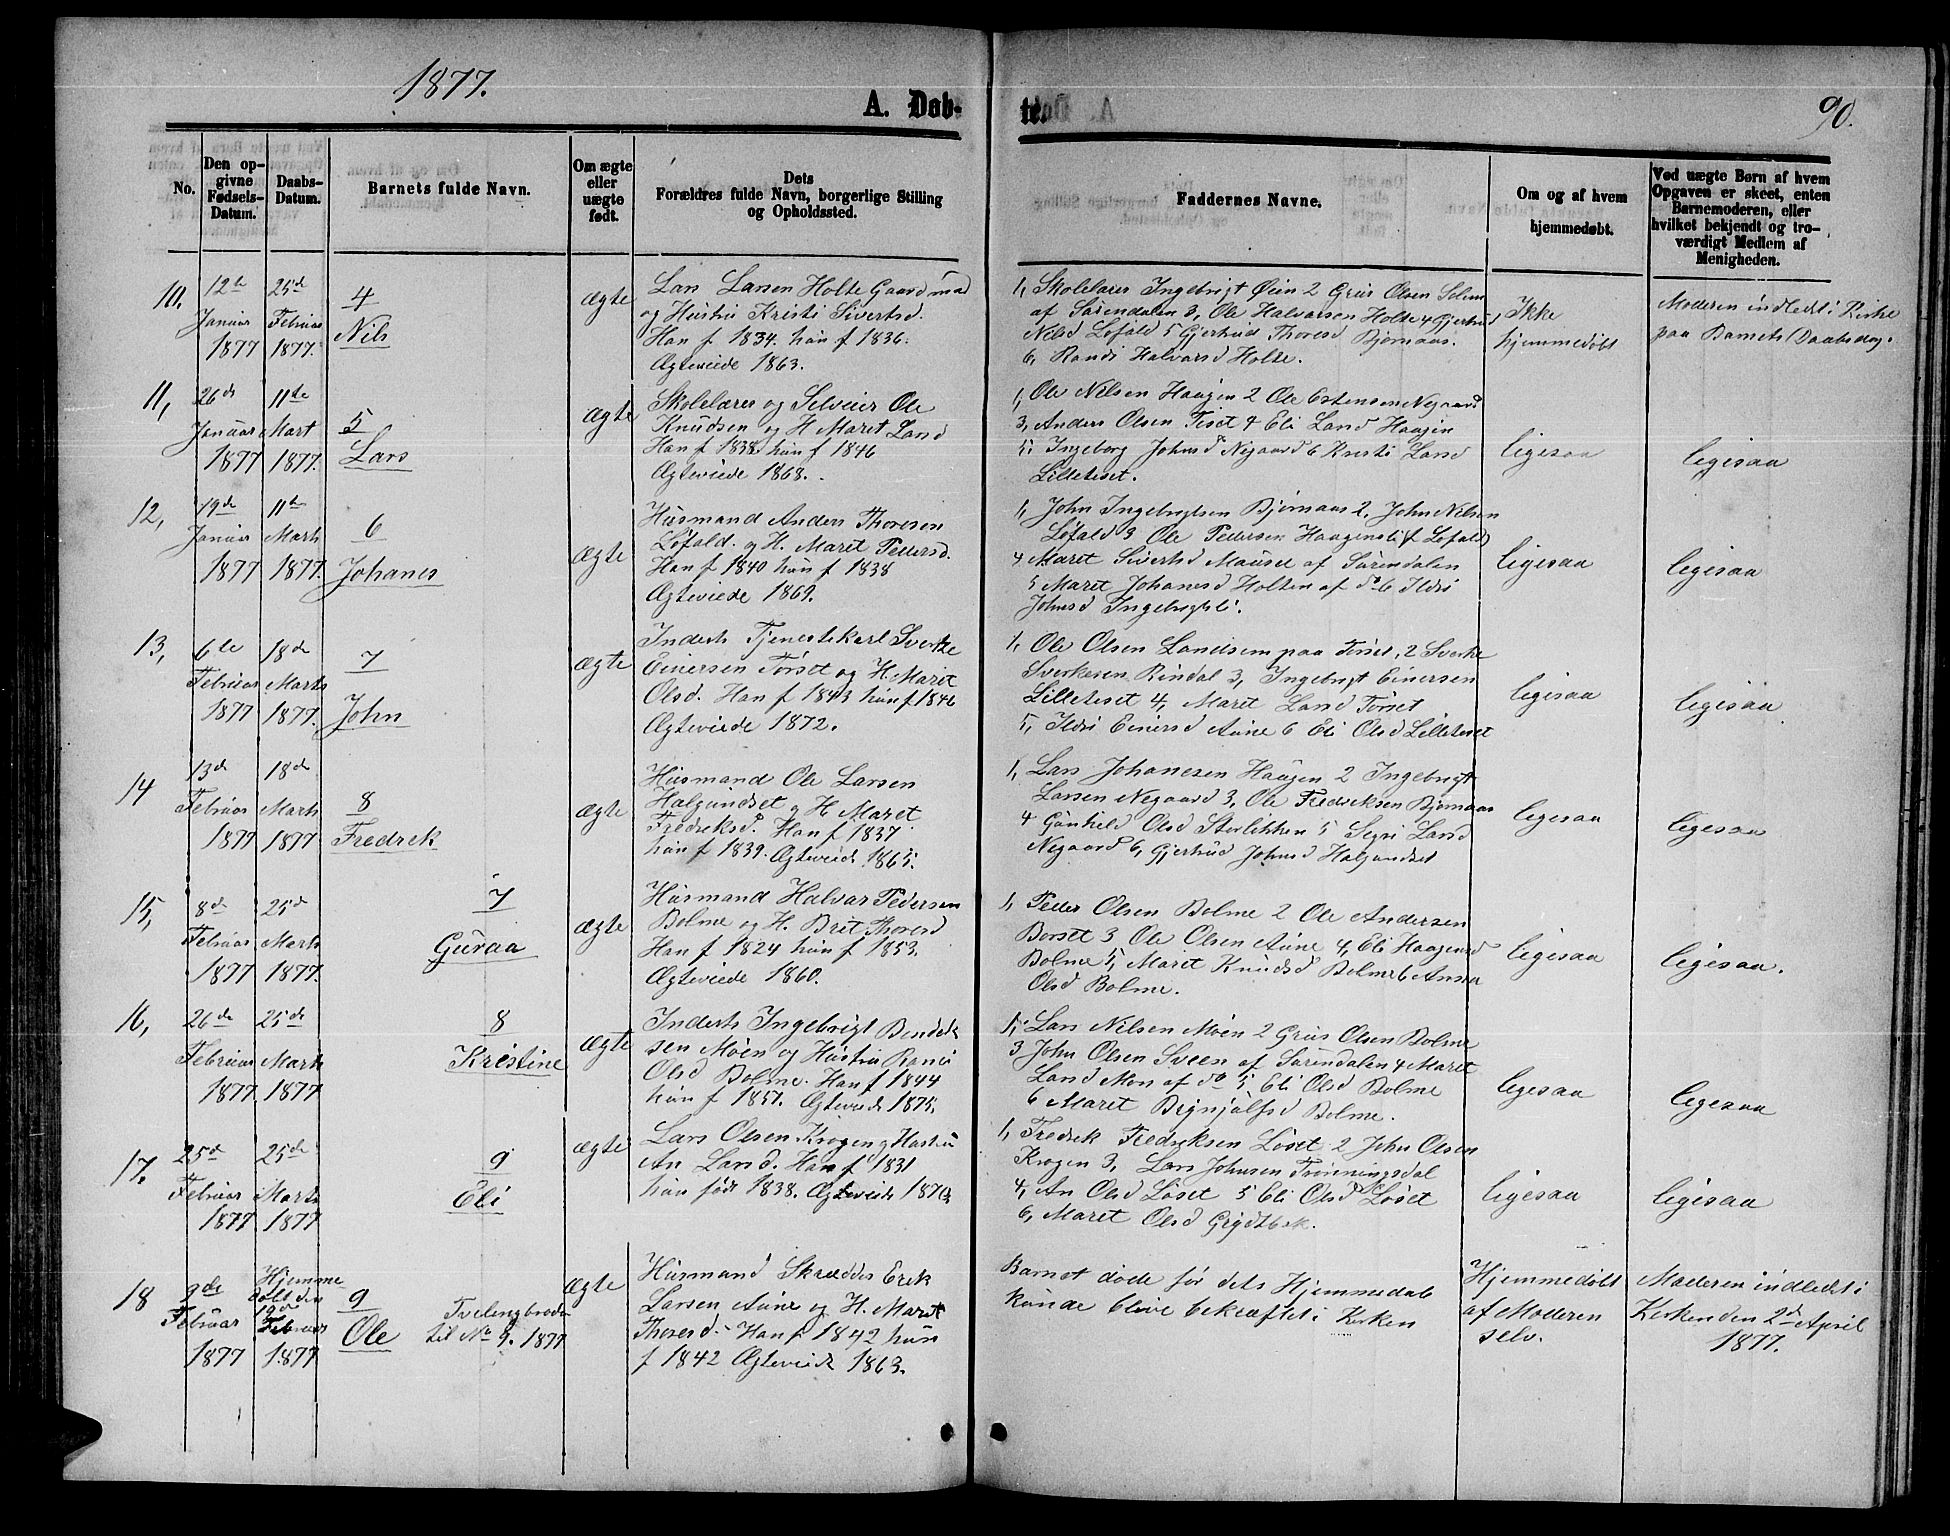 1877.
A. Døb-
te.
90.
No.
Den op-
givne
Fødsels-
Datum.
Daabs-
Datum.
Barnets fulde Navn.
Om ægte
eller
uægte
født.
Dets
Forældres fulde Navn, borgerlige Stilling
og Opholdssted.
Faddernes Navne.
Om og af hvem
hjemmedøbt.
Ved uægte Børn af hvem
Opgaven er skeet, enten
Barnemoderen, eller
hvilket bekjendt og tro-
værdigt Medlem af
Menigheden.
10,
12te
Januar
1877
25de
Februar
1877.
4
Nils
ægte
Lars Larsen Holte Gaardmad
og Hustru Kristi Sivertsd.
Han f 1834. hun f 1836.
Ægteviede 1863.
1, Skolelærer Ingebrigt Øien 2 Grus Olsen Solem
af Surendalen 3, Ole Halvarsen Holte 4 Gjertrud
Nilsd Løfald 5 Gjertrud Thoresd Bjørnaas.
6, Randi Halvarsd Holte.
Ikke
hjemmedøbt
Moderen indledt i Kirke
paa Barnets Daabsdag.
11,
26de
Januar
1877
11te
Mart
1877.
5
Lars
ægte
Skolelærer og Selveier Ole
Knudsen og H Maret Larsd
Han f 1838. hun f 1846
Ægteviede 1868.
1, Ole Nilsen Haugen 2 Ole Estensen Negaard
3, Anders Olsen Tiset 4 Eli Larsd Haagin
5, Ingeborg Johnsd Negaard 6 Kristi Larsd
Lilleteset.
ligesaa
ligesaa
12,
19de
Januar
1877
11te
Marts
1877.
6
Johanes
ægte
Husmand Anders Thoresen
Løfald. og H. Maret Pedersd.
Han f 1840 hun f 1838
Ægteviede 1869.
1, John Ingebrigtsen Bjørnaas 2, John Nilsen
Løfald 3 Ole Pedersen Haagensli f Løfald
4 Maret Sivertsd Mauset af Surendalen
5 Maret Johanesd Holten af do 6 Ildri
Johnsd Ingebrigtsli.
ligesaa
ligesaa
13,
6te
Februar
1877
18de
Marts
1877.
7
John
ægte
Inderst Tjenestekarl Sverke
Einersen Torset og H. Marit
Olsd. Han f 1843 hun f 1846
Ægteviede 1872.
1, Ole Olsen Landsem paa Torset, 2 Sverke
Sverkesen Rindal 3, Ingebrigt Einersen
Lilleteset 4, Maret Larsd Torset
5, Ildri Einersd Aune 6 Eli Olsd Lilleteset
ligesaa
ligesaa
14
13de
Februar
1877
18de
Marts
1877
8
Fredrek
ægte
Husmand Ole Larsen
Halgundset og H Maret
Fredreksd. Han f 1837
hun f 1839. Ægteviede 1865.
1, Lars Johanesen Haugen 2 Ingebrigt
Larsen Negaard 3, Ole Fredreksen Bjørnaas
4 Gunhild Olsd Storlikken 5 Segri Larsd
Negaard 6, Gjertrud Johnsd Halgundset
ligesaa
ligesaa
15,
8de
Februar
1877
25de
Marts
1877.
7
Guraa
ægte
Husmand Halvar Pedersen
Bolme og H. Brit Thoresd
Han f 1824 hun f 1853.
Ægteviede 1860.
1, Peder Olsen Bolme 2 Ole Andersen
Borset 3 Ole Olsen Aune 4, Eli Haagensd
Bolme 5, Maret Knudsd Bolme 6 Anna
Olsd Bolme.
ligesaa
ligesaa.
16,
26de
Februar
1877.
25de
Marts
1877
8
Kristine
ægte
Inderst Ingebrigt Bendik
sen Moen og Hustru Ranei
Olsd Bolme. Han f 1844
hun f 1851. Ægteviede 1875.
1, Lars Nilsen Moen 2 Grus Olsen Bolme
3, John Olsen Sveen af Surendalen 4 Maret
Larsd Mon af do 5 Eli Olsd Bolme
6 Maret Brynjulfsd Bolme.
ligesaa
ligesaa
17.
25de
Februar
1877
25de
Marts
1877
9
Eli
ægte
Lars Olsen Krogen og Hustru
An Larsd. Han f 1831
hun født 1838. Ægteviede 1870.
1, Fredrek Fredreksen Løset 2 John Olsen
Krogen 3, Lars Johnsen Trønningsdal
4, An Olsd Løset 5 Eli Olsd Løset
6, Maret Olsd Grydtbek.
ligesaa
ligesaa
18
9de
Februar
1877
Hjemme
døbt den
19de
Februar
1877
9
Ole
Tvelingbroder
til No 9. 1877
ægte
Husmand Skrædder Erek
Larsen Aune og H. Maret
Thoresd. Han f 1842 hun
f 1842 Ægteviede 1863.
Barnet døde før dets Hjemmedaab
kunde blive bekræftet i Kirken
Hjemmedøbt
af Moderen
selv.
Moderen indledt i
Kirken den 2de April
1877.